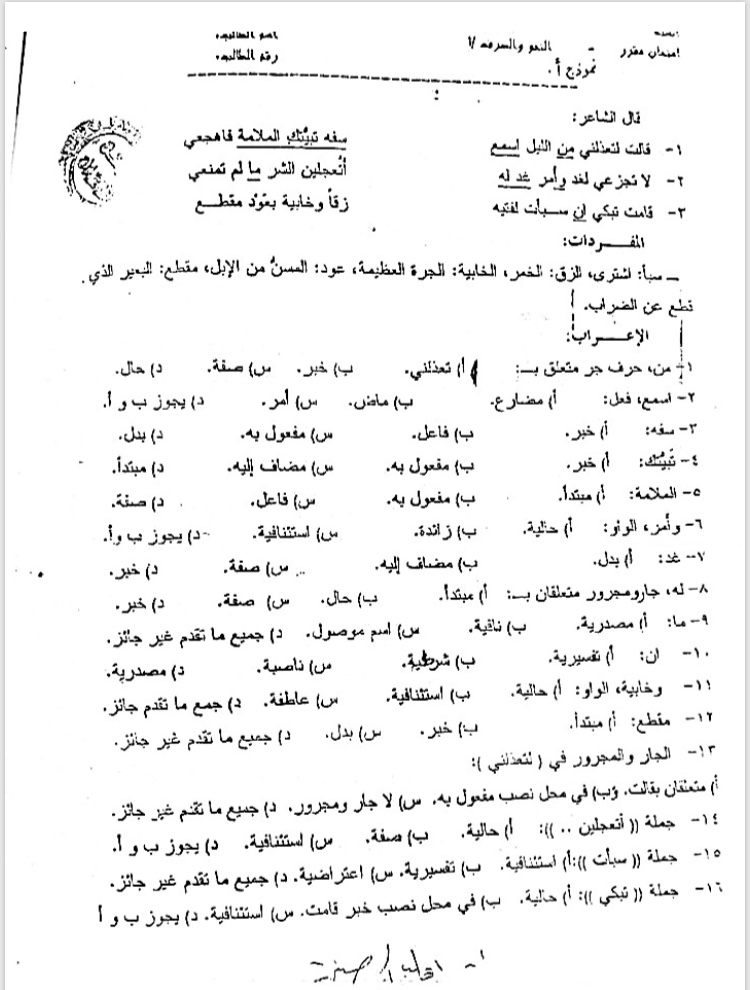 اسم الطالب:
امتحان مقرر - النحو والصرف /٧ رقم الطالب:
نموذج أ.
قال الشاعر:
١- قالت لتعذلني من الليل اسمع سفه تبيُّتك الملامة فاهجعي
٢- لا تجزعي لغد وأمر غد له أتعجلين الشر ما لم تمنعي
٣- قامت تبكي ان سبأت لفتيه زقاً وخابية بعَوْد مقطع
المفردات:
ـ سبأ: اشترى، الزق: الخمر، الخابية: الجرة العظيمة، عود: المسنُّ من الإبل، مقطع: البعير الذي
قطع عن الضراب.
الإعراب:
١- من، حرف جر متعلق بـ: أ) تعذلني. ب) خبر. س) صفة. د) حال.
٢- اسمع، فعل: أ) مضارع. ب) ماض. س) أمر. د) يجوز ب و أ.
٣- سفه: أ) خبر. ب) فاعل. س) مفعول به. د) بدل.
٤- تَبيُّتك: أ) خبر. ب) مفعول به. س) مضاف إليه. د) مبتدأ.
٥- الملامة: أ) مبتدأ. ب) مفعول به. س) فاعل. د) صفة.
٦- وأمر، الواو: أ) حالية. ب) زائدة. س) استئنافية. د) يجوز ب وأ.
٧- غد: أ) بدل. ب) مضاف إليه. س) صفة. د) خبر.
٨- له، جارومجرور متعلقان بـ: أ) مبتدأ. ب) حال. س) صفة. د) خبر.
٩- ما: أ) مصدرية. ب) نافية. س) اسم موصول. د) جميع ما تقدم غير جائز.
١٠- ان: أ) تفسيرية. ب) شرطية. س) ناصبة. د) مصدرية.
١١- وخابية، الواو: أ) حالية. ب) استئنافية. س) عاطفة. د) جمع ما تقدم جائز.
١٢- مقطع: أ) مبتدأ. ب) خبر. س) بدل. د) جميع ما تقدم غير جائز.
١٣- الجار والمجرور في ( لتعذلني ):
أ) متعلقان بقالت. ب) في محل نصب مفعول به. س) لا جار ومجرور. د) جميع ما تقدم غير جائز.
١٤- جملة (( أتعجلين .. )): أ) حالية. ب) صفة. س) استئنافية. د) يجوز ب و أ.
١٥- جملة (( سبأت )): أ) استئنافية. ب) تفسيرية. س) اعتراضية. د) جميع ما تقدم غير جائز.
١٦- جملة (( تبكي )): أ) حالية. ب) في محل نصب خبر قامت. س) استئنافية. د) يجوز ب و أ